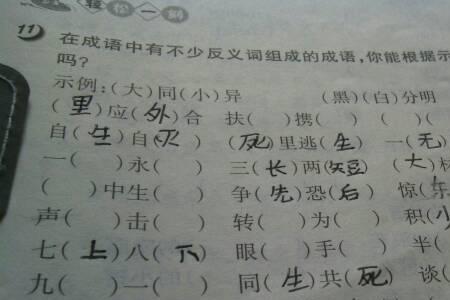 轻松一刻
11 在成语中有不少反义词组成的成语,你能根据示
吗?
示例:(大)同(小)异 (黑)(白)分明
(里)应(外)合 扶( )携( ) ( )(
自(生)自(灭) (死)里逃(生) 一(无)
一( )永( ) 三(长)两(短) (大)材
( )中生( ) 争(先)恐(后) 惊(东
声( )击( ) 转( )为( ) 积(少
七(上)八(下) 眼( )手( ) 半(
九( )一( ) 同(生)共(死) 谈(